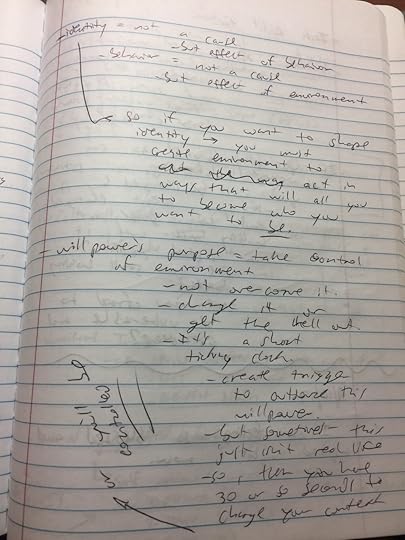 - identity = not a cause
- but effect of behavior
- Behavior = not a cause
- but effect of environment
so if you want to shape
identity → you must
create environment to
act in
ways that will all you
to become who you
want to be.
- willpower's purpose = take control
of environment
- not overcome it.
- change it or
get the hell out.
- It's a short
ticking clock.
- create trigger
to outpace this
willpower.
- but sometimes this
just isn't real life
- so, then you have
30 or so seconds to
change your context